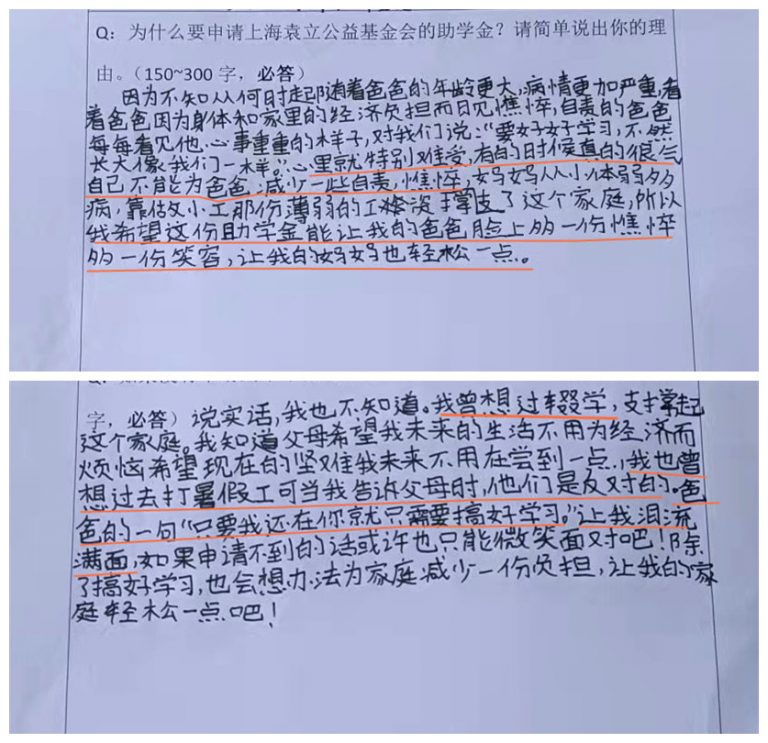 Q：为什么要申请上海袁立公益基金会的助学金？请简单说出你的理
由。（150~300 字，必答）
因为不知从何时起随着爸爸的年龄更大，病情更加严重，看
着爸爸因为身体和家里的经济负担而日见憔悴，自责的爸爸
每每看见他心事重重的样子，对我们说：“要好好学习，不然
长大像我们一样。”心里就特别难受，有的时候真的很气
自己不能为爸爸减少一些自责，憔悴，妈妈从小体弱多
病，靠做小工那份薄弱的工资支撑了这个家庭，所以
我希望这份助学金能让我的爸爸脸上多一份憔悴
多一份笑容，让我的妈妈也轻松一点。
字，必答）说实话，我也不知道。我曾想过辍学，支撑起
这个家庭。我知道父母希望我未来的生活不用为经济而
烦恼希望现在的坚难我未来不用在尝到一点，我也曾
想过去打暑假工可当我告诉父母时，他们是反对的。爸
爸的一句“只要我还在你就只需要搞好学习。”让我泪流
满面，如果申请不到的话或许也只能微笑面对吧！除
了搞好学习，也会想办法为家庭减少一份负担，让我的家
庭轻松一点吧！